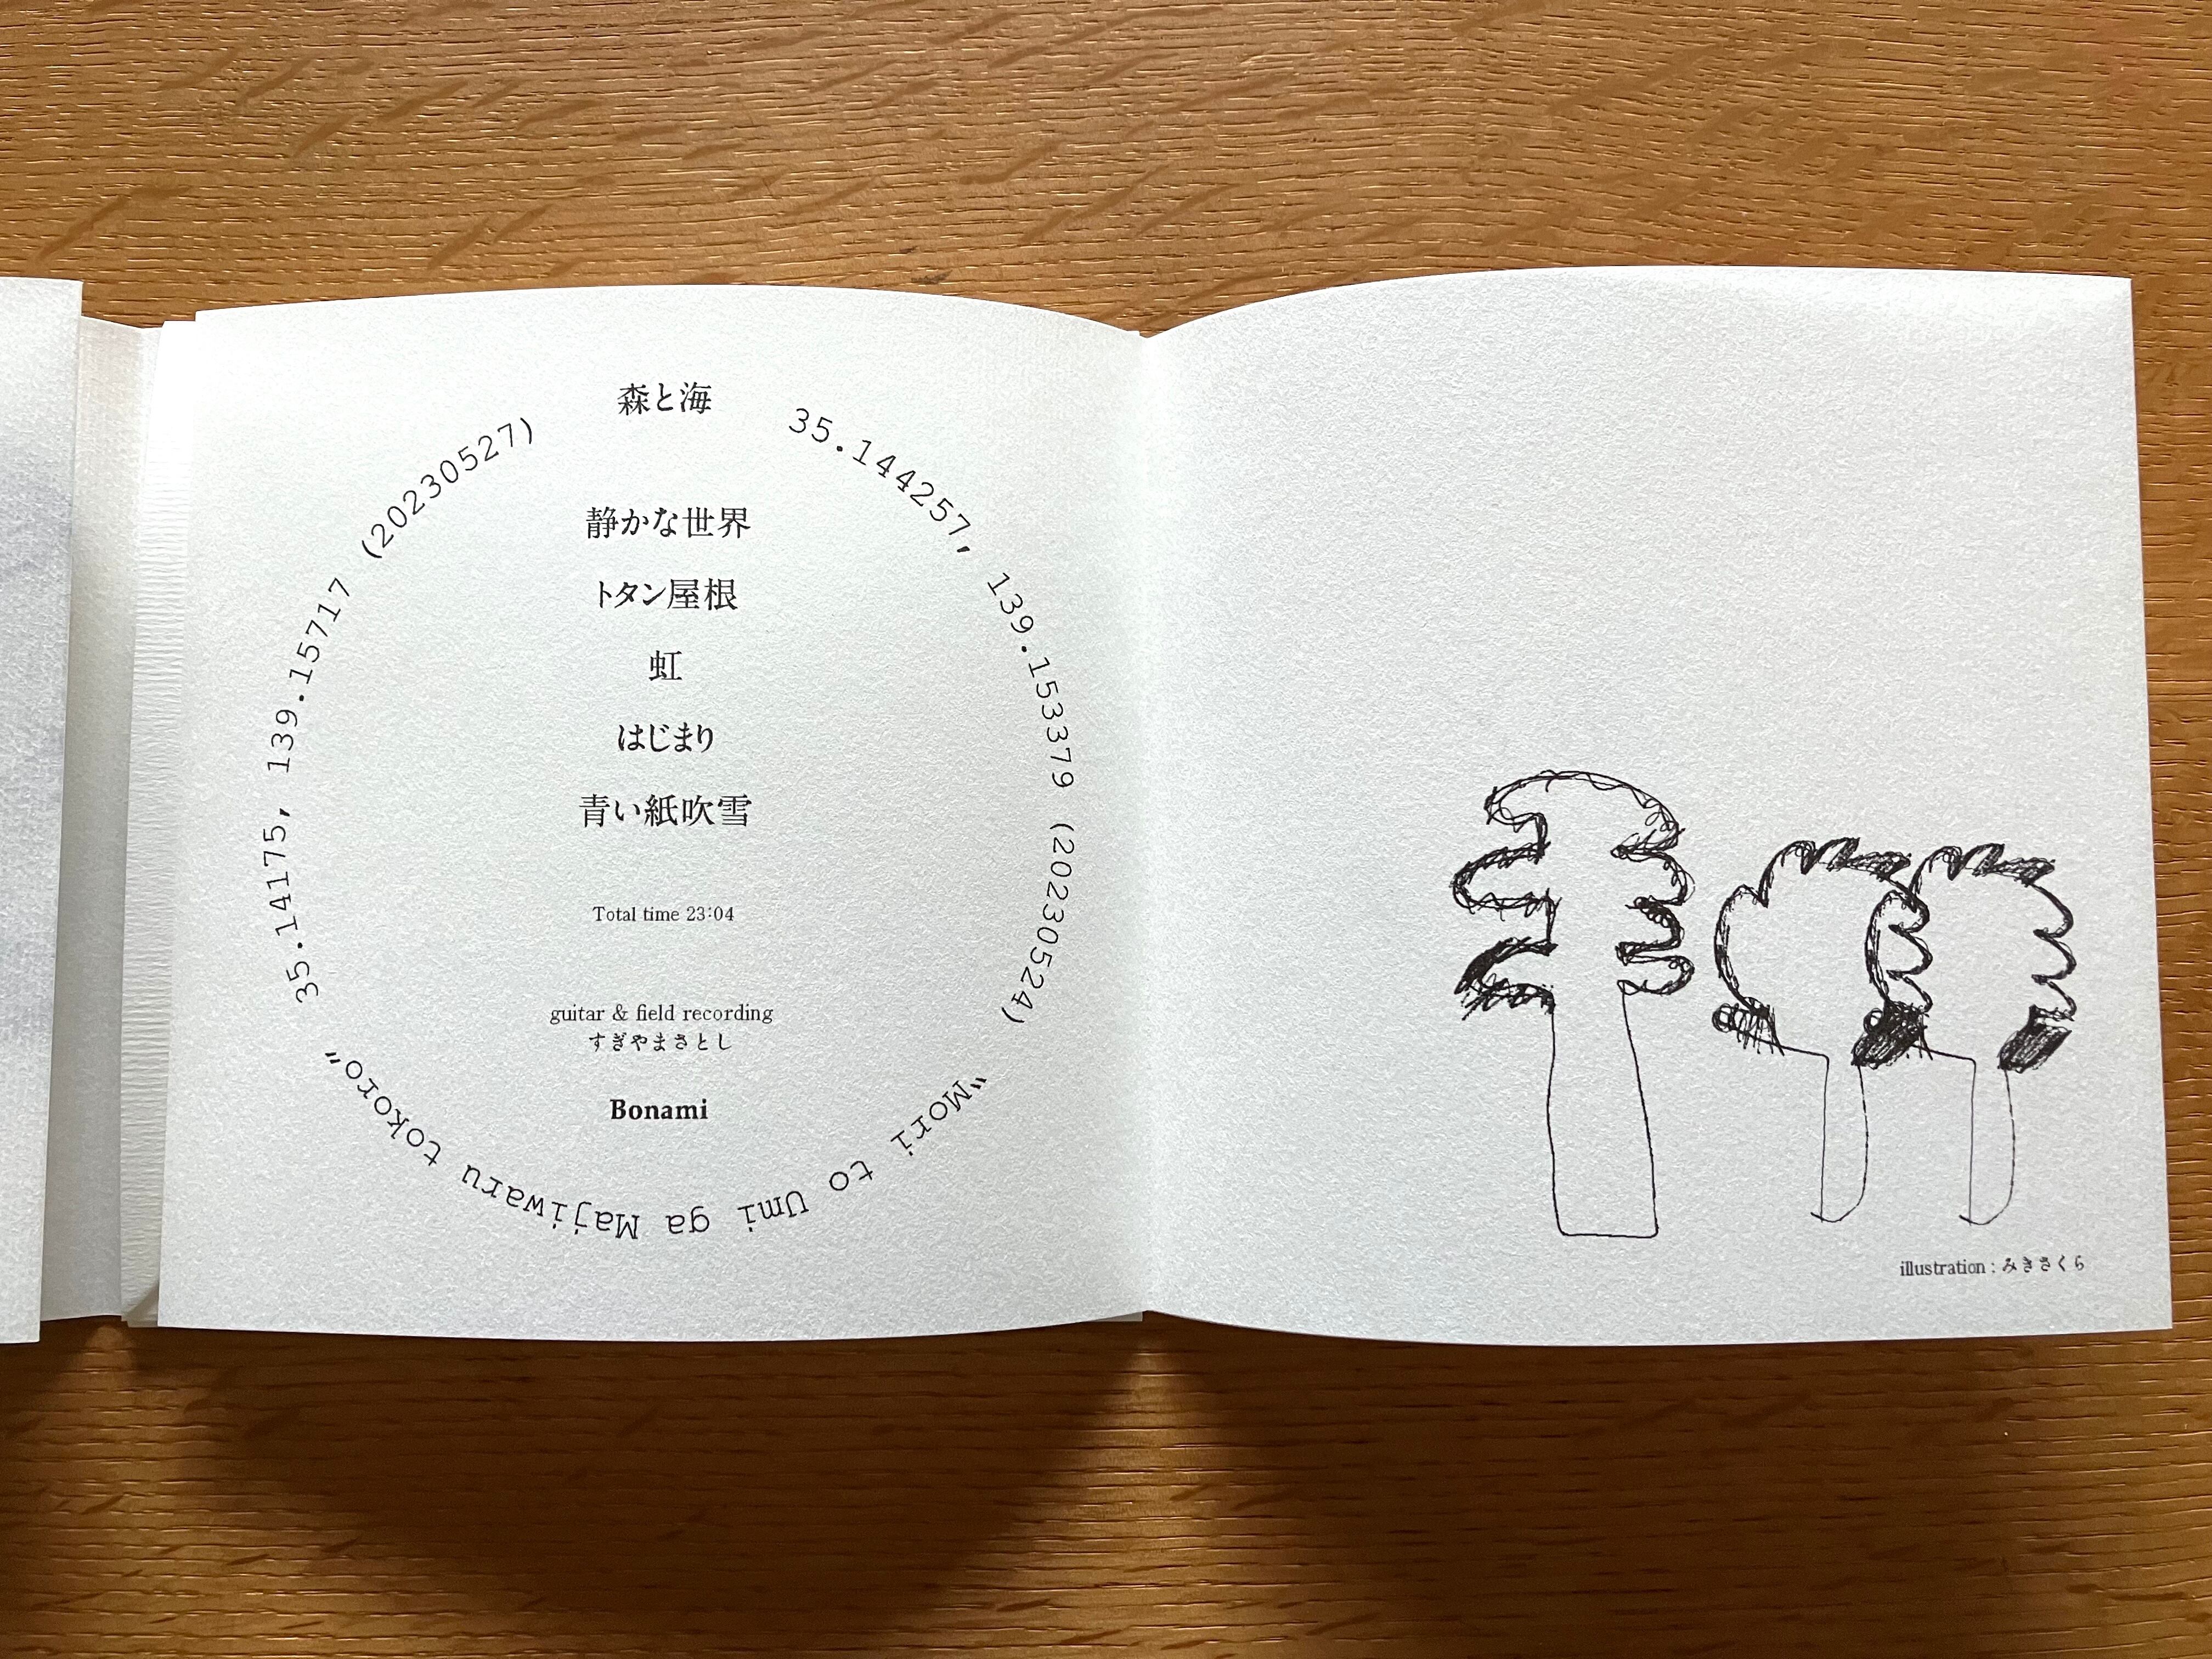 森と海
35.144257, 139.153379 (20230524)
"Mori to Umi ga Majiwaru tokoro"
35.14175, 139.15717 (20230527)
静かな世界
トタン屋根
虹
はじまり
青い紙吹雪
Total time 23:04
guitar & field recording
すぎやまさとし
Bonami
illustration : みきさくら